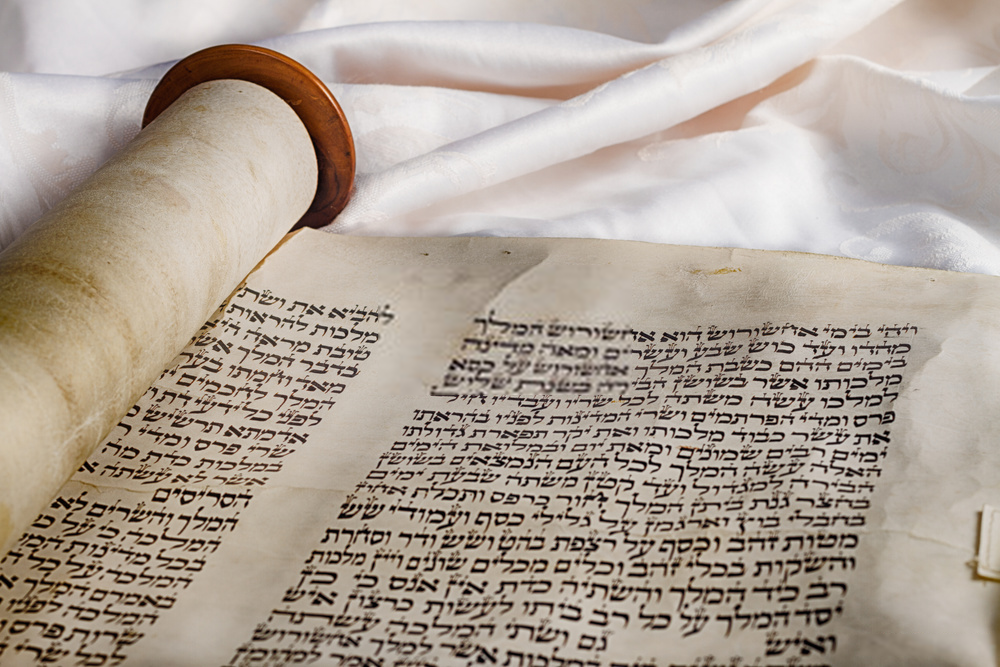 ויהי בימי אחשורוש הוא אחשורוש המלך
מהדו ועד כוש שבע ועשרים ומאה מדינה
בימים ההם כשבת המלך אחשורוש על כסא
מלכותו אשר בשושן הבירה בשנת שלוש
למלכו עשה משתה לכל שריו ועבדיו חיל
פרס ומדי הפרתמים ושרי המדינות לפניו בהראתו
את עשר כבוד מלכותו ואת יקר תפארת גדולתו
ימים רבים שמונים ומאת יום ובמלואת הימים
האלה עשה המלך לכל העם הנמצאים בשושן
הבירה למגדול ועד קטן משתה שבעת ימים
בחצר גנת ביתן המלך חור כרפס ותכלת אחוז
בחבלי בוץ וארגמן על גלילי כסף ועמודי שש
מטות זהב וכסף על רצפת בהט ושש ודר וסחרת
והשקות בכלי זהב וכלים מכלים שונים ויין מלכות
רב כיד המלך והשתיה כדת אין אנס כי כן
יסד המלך על כל רב ביתו לעשות כרצון איש
ואיש גם ושתי המלכה עשתה
להביא את ושתי
מלכות להראות
טובת מראה היא
בדבר המלך אשר
מאד וחמתו בערה
המלך לחכמים
לפני כל ידעי דת
אדמתא תרשיש
שרי פרס ומדי
במלכות כדת מה
אשר לא עשתה
הסריסים
המלך והשרים לא
המלכה כי על כל
מדינות
המלכה על כל
באמרם המלך
המלכה לפניו
שרות פרס
לכל שרי